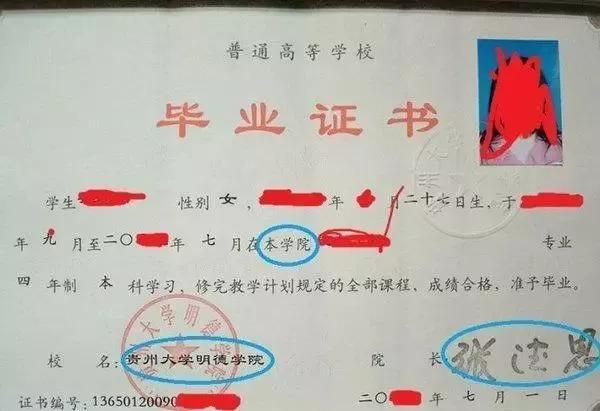 普通高等学校
毕业证书
学生 性别 女， 年 月二十七日生，于
年 九 月至二〇 年 七 月在本学院 专业
四 年制 本 科学习，修完教学计划规定的全部课程，成绩合格，准予毕业。
校 名：贵州大学明德学院 院 长：
证书编号：13650120090 二〇 年 七 月 一 日
贵州大学明德学院